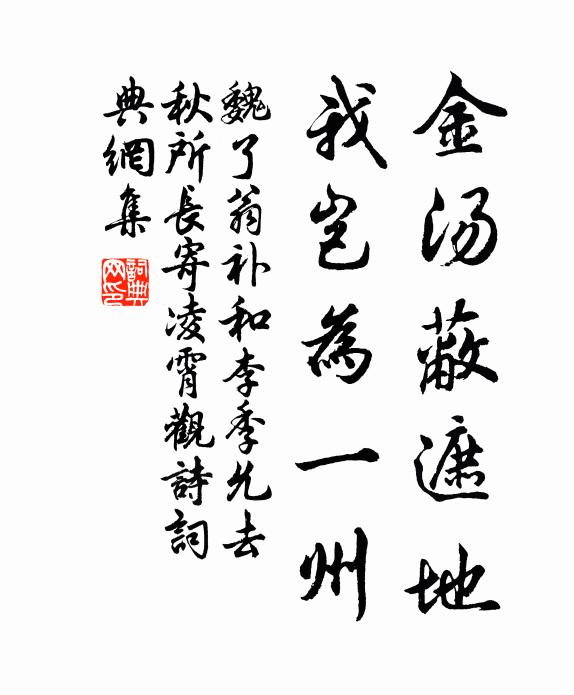 金汤蔽遮地
我岂為一州
魏了翁补和李季允去
秋所長寄凌霄觀詩詞
典網集
詞典網印